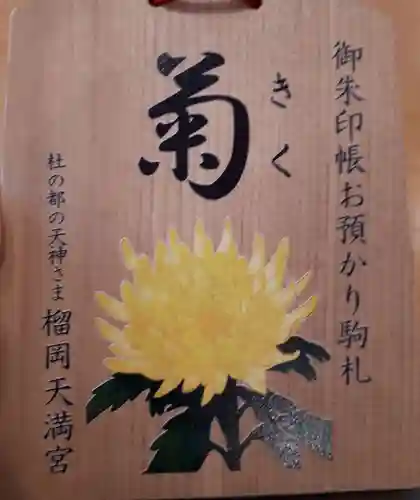 御朱印帳お預かり駒札
きく
菊
杜の都の天神さま
榴岡天満宮